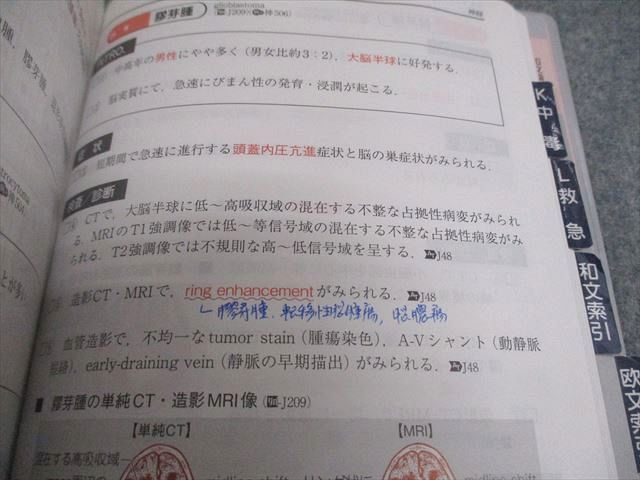 glioblastoma
膠芽腫
J209
神506
INTRO.
中高年の男性にやや多く(男女比約3:2)、大脳半球に好発する.
脳実質にて、急速にびまん性の発育・浸潤が起こる.
症 状
短期間で急速に進行する頭蓋内圧亢進症状と脳の巣症状がみられる.
検査/診断
CTで、大脳半球に低〜高吸収域の混在する不整な占拠性病変がみられ
る. MRIのT1強調像では低〜等信号域の混在する不整な占拠性病変がみ
られる. T2強調像では不規則な高〜低信号域を呈する. J48
造影CT・MRIで、ring enhancementがみられる. J48
膠芽腫、転移性脳腫瘍、脳膿瘍
血管造影で、不均一なtumor stain(腫瘍染色)、A-Vシャント(動静脈
短絡)、early-draining vein(静脈の早期描出)がみられる. J48
■ 膠芽腫の単純CT・造影MRI像(J209)
【単純CT】
【MRI】
混在する高吸収域
midline shift
midline shift
K
中
毒
L
救
急
和文索引
欧文索引